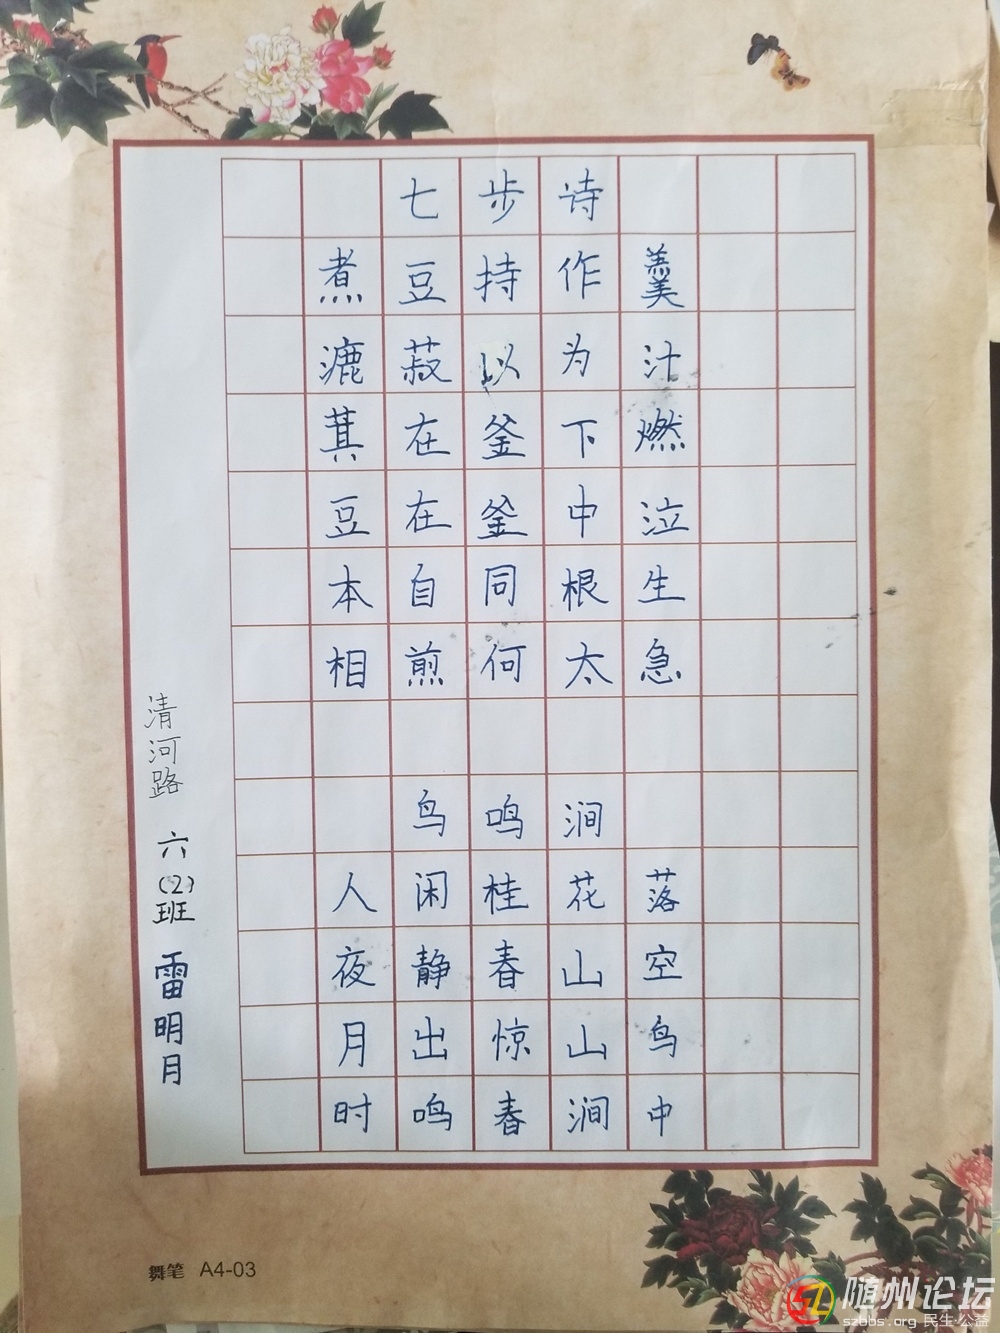 七步诗
煮豆持作羹
漉菽以为汁
萁在釜下燃
豆在釜中泣
本自同根生
相煎何太急
鸟鸣涧
人闲桂花落
夜静春山空
月出惊山鸟
时鸣春涧中
清河路 六(2)班 雷明月
舞笔 A4-03
随州论坛
szbbs.org 民生·公益